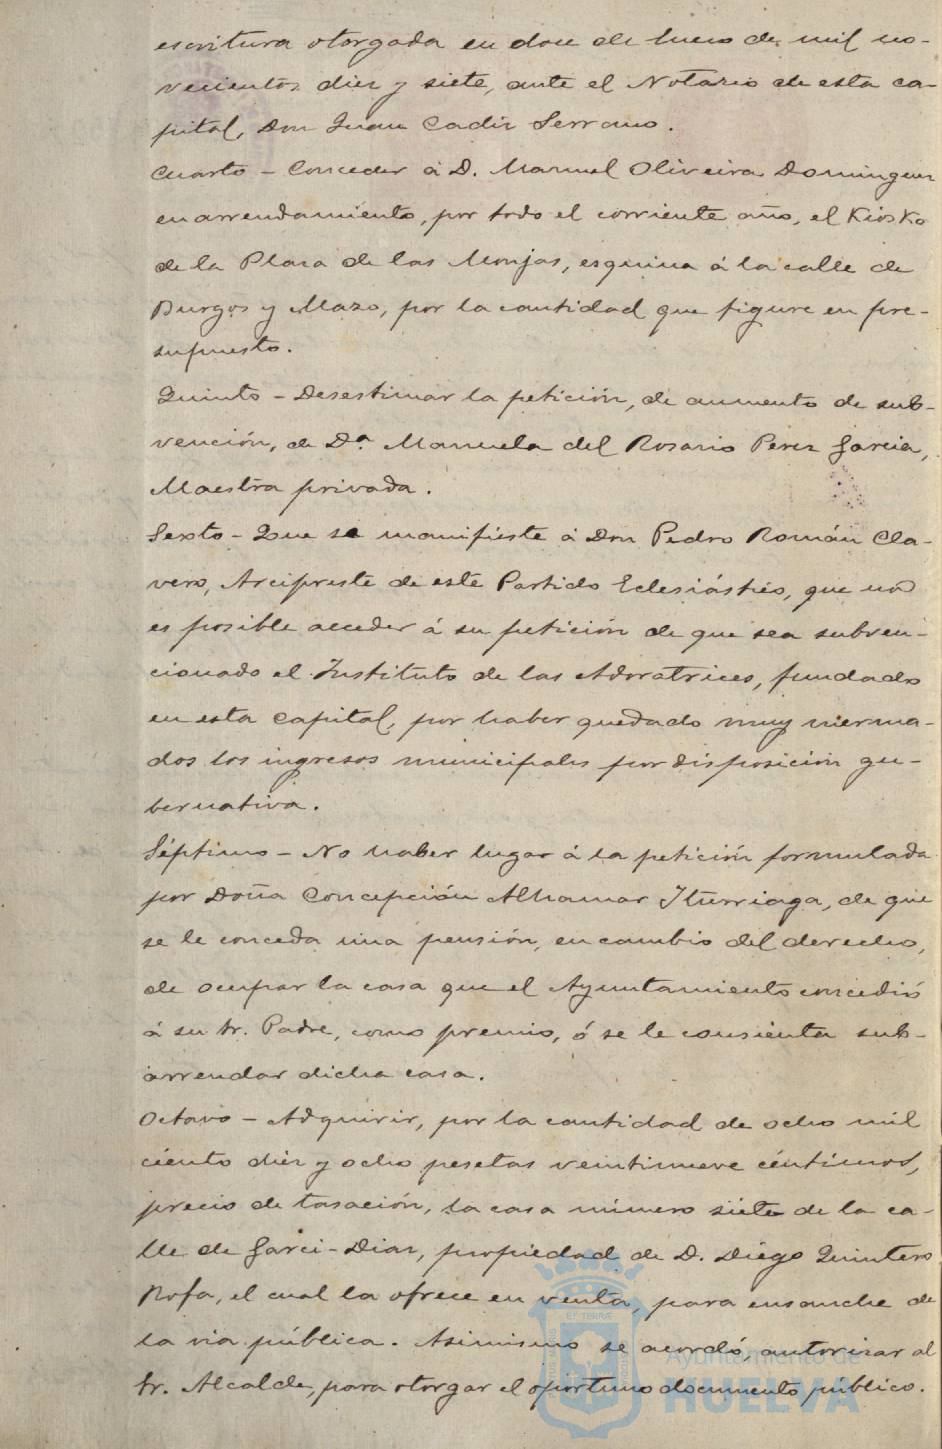 escritura otorgada en doce de Enero de mil no-
vecientos diez y siete, ante el Notario de esta ca-
pital, Don Juan Cadiz Serrano.
Cuarto - Conceder á D. Manuel Oliveira Dominguez
en arrendamiento, por todo el corriente año, el Kiosko
de la Plaza de las Monjas, esquina á la calle de
Burgos y Mazo, por la cantidad que figure en pre-
supuesto.
Quinto - Desestimar la petición, de aumento de sub-
vención, de Dª. Manuela del Rosario Perez Garcia,
Maestra privada.
Sexto - Que se manifieste á Don Pedro Román Cla-
vero, Arcipreste de este Partido Eclesiástico, que no
es posible acceder á su petición de que sea subven-
cionado el Instituto de las Adoratrices, fundado
en esta capital, por haber quedado muy merma-
dos los ingresos municipales por disposición gu-
bernativa.
Séptimo - No haber lugar á la petición formulada
por Doña Concepción Alhamar Iturriaga, de que
se le conceda una pensión, en cambio del derecho,
de ocupar la casa que el Ayuntamiento concedió
á su Sr. Padre, como premio, ó se le consienta sub-
arrendar dicha casa.
Octavo - Adquirir, por la cantidad de ocho mil
ciento diez y ocho pesetas veintinueve céntimos,
precio de tasación, la casa número siete de la ca-
lle de Garci-Diaz, propiedad de D. Diego Quintero
Rofa, el cual la ofrece en venta, para ensanche de
la via pública. Asimismo se acordó, autorizar al
Sr. Alcalde, para otorgar el oportuno documento público.
Ayuntamiento de
HUELVA